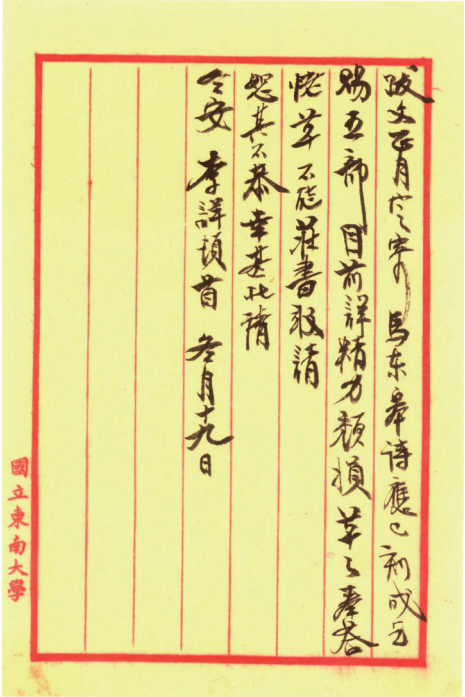 跋文正月定寄馬东皋诗應已刻成乞
賜五部目前詳精力頹損草々奉答
恅草不能莊書敬請
恕其不恭幸甚此請
安 李詳頓首 冬月十九日
國立東南大學